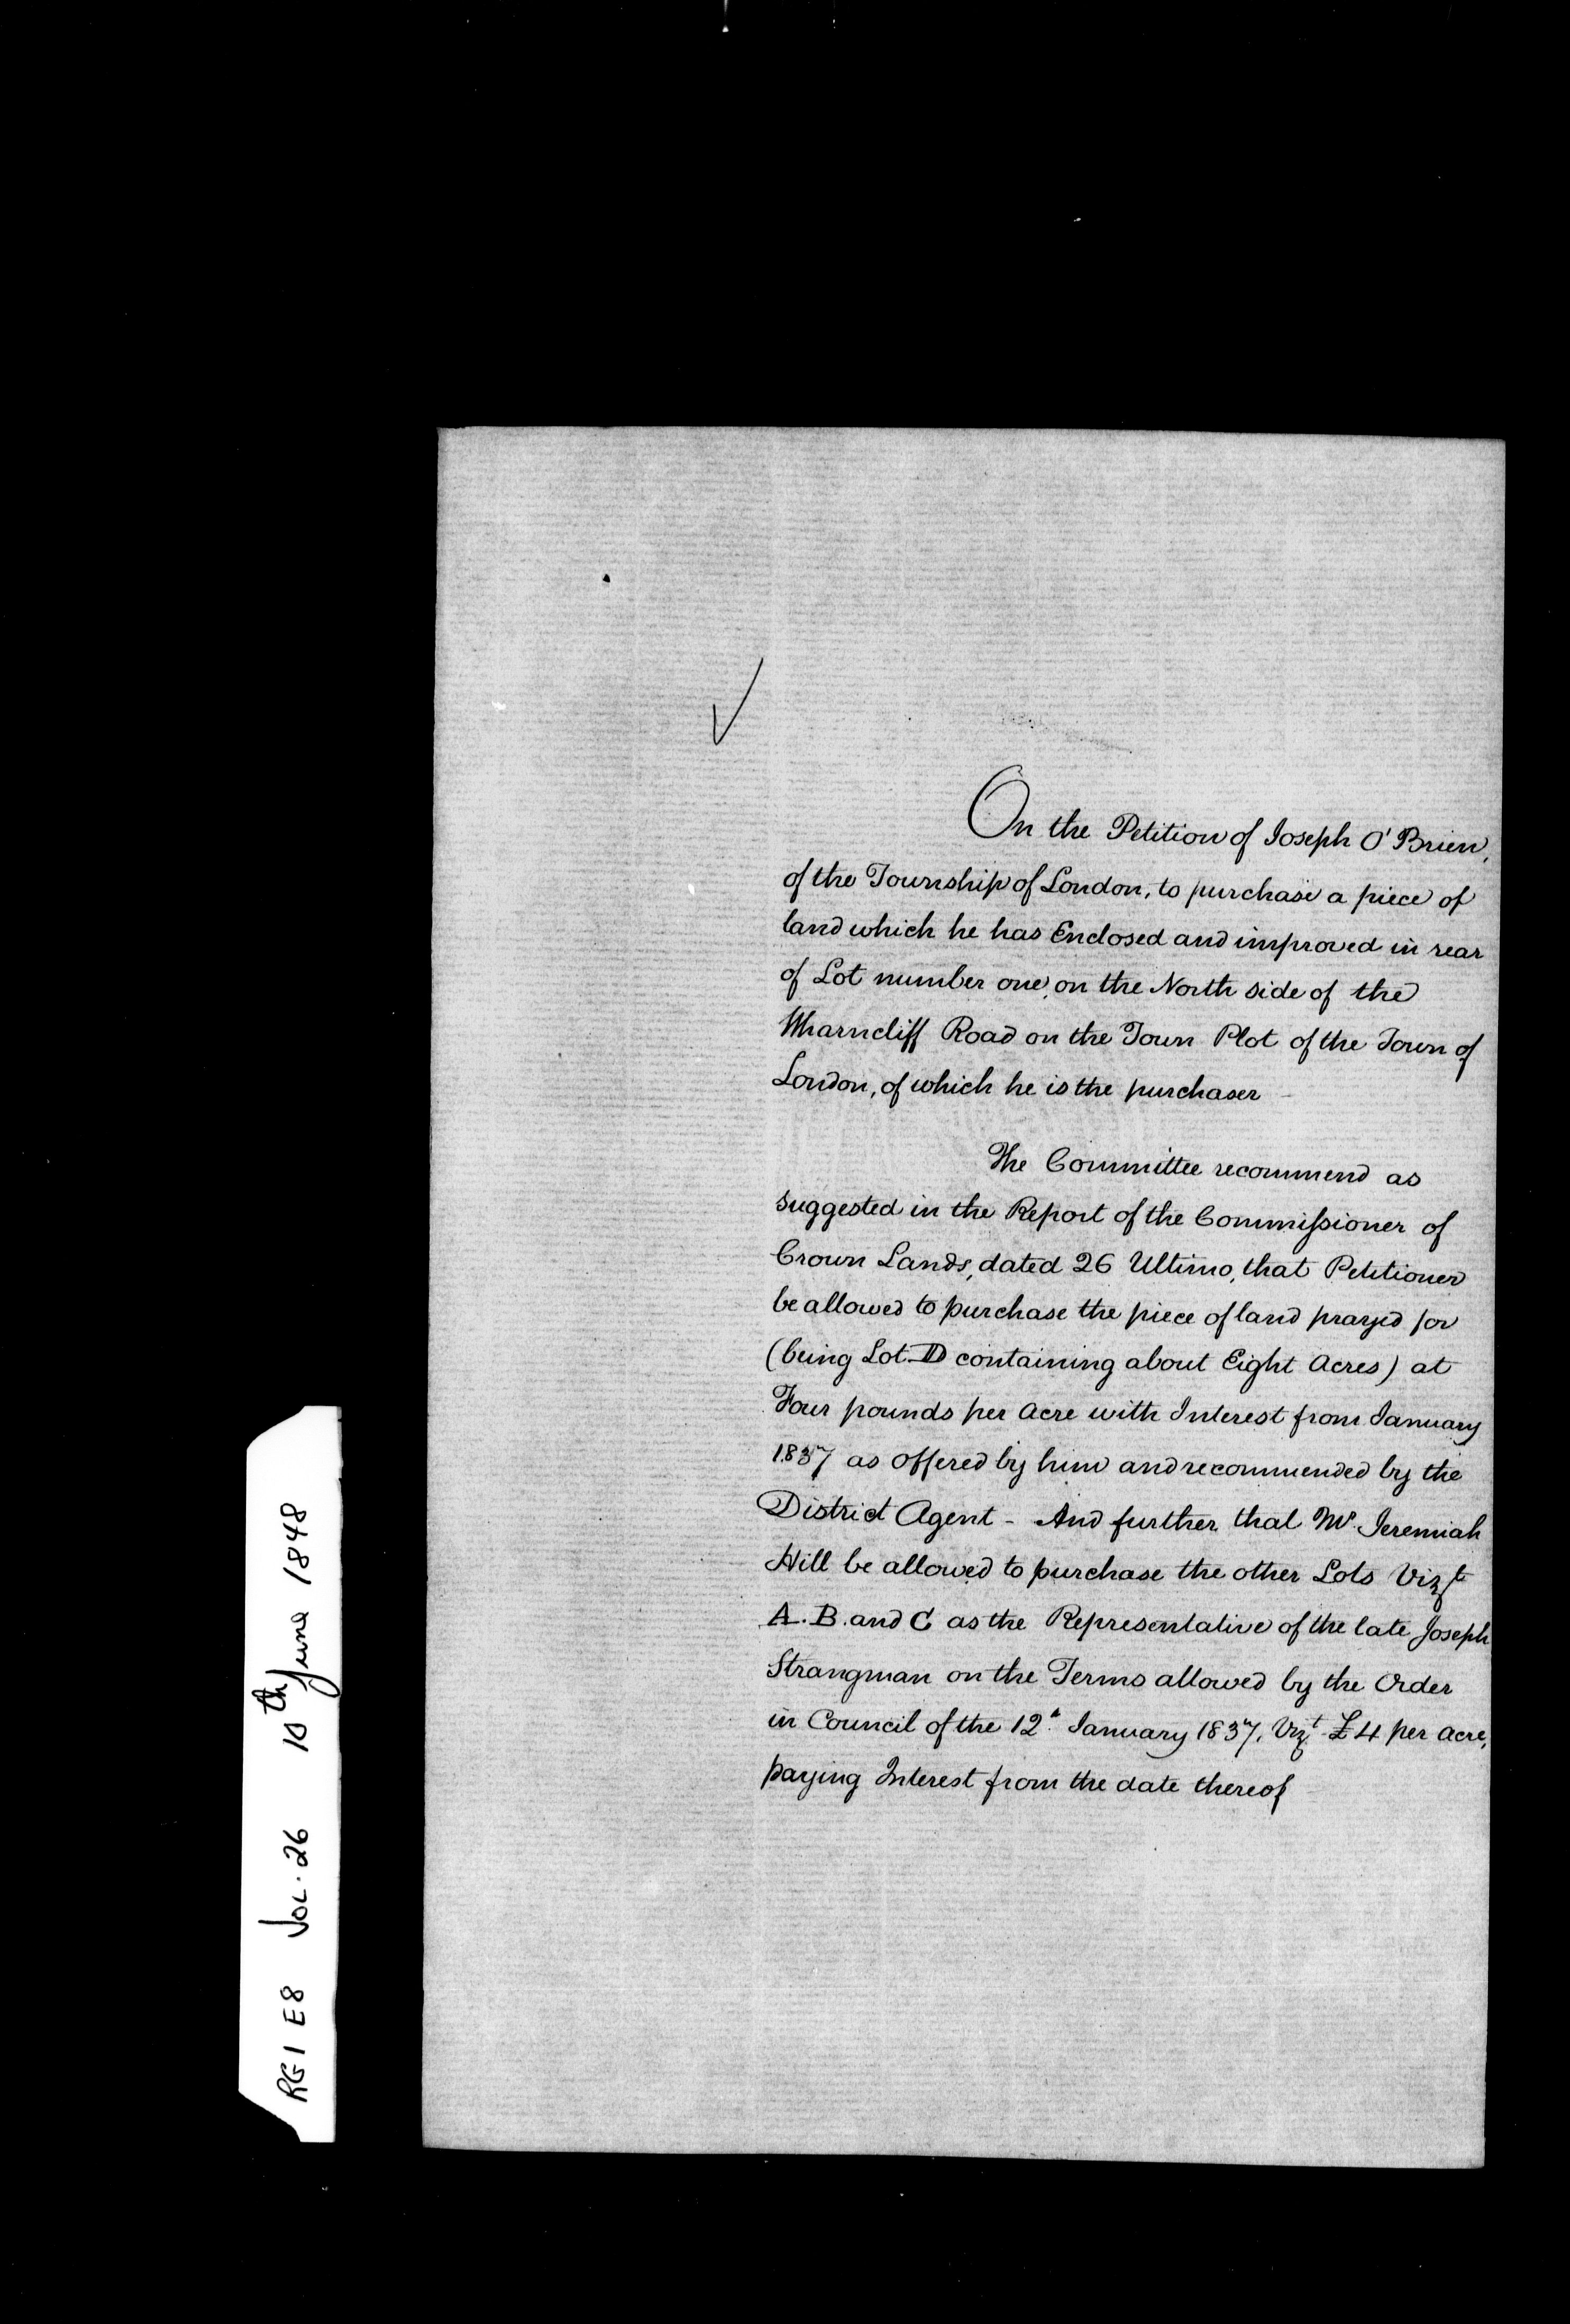 On the Petition of Joseph O'Brien,
of the Township of London, to purchase a piece of
land which he has Enclosed and improved in rear
of Lot number one, on the North side of the
Wharncliff Road on the Town Plot of the Town of
London, of which he is the purchaser
The Committee recommend as
suggested in the Report of the Commissioner of
Crown Lands, dated 26 Ultimo, that Petitioner
be allowed to purchase the piece of land prayed for
(being Lot D containing about Eight Acres) at
Four pounds per Acre with Interest from January
1837 as offered by him and recommended by the
District Agent - And further that Mr. Jeremiah
Hill be allowed to purchase the other Lots Vizt
A. B. and C as the Representative of the late Joseph
Strangman on the Terms allowed by the Order
in Council of the 12th January 1837, Vizt £4 per acre,
paying Interest from the date thereof
RG1 E8 VOL. 26 10th June 1848